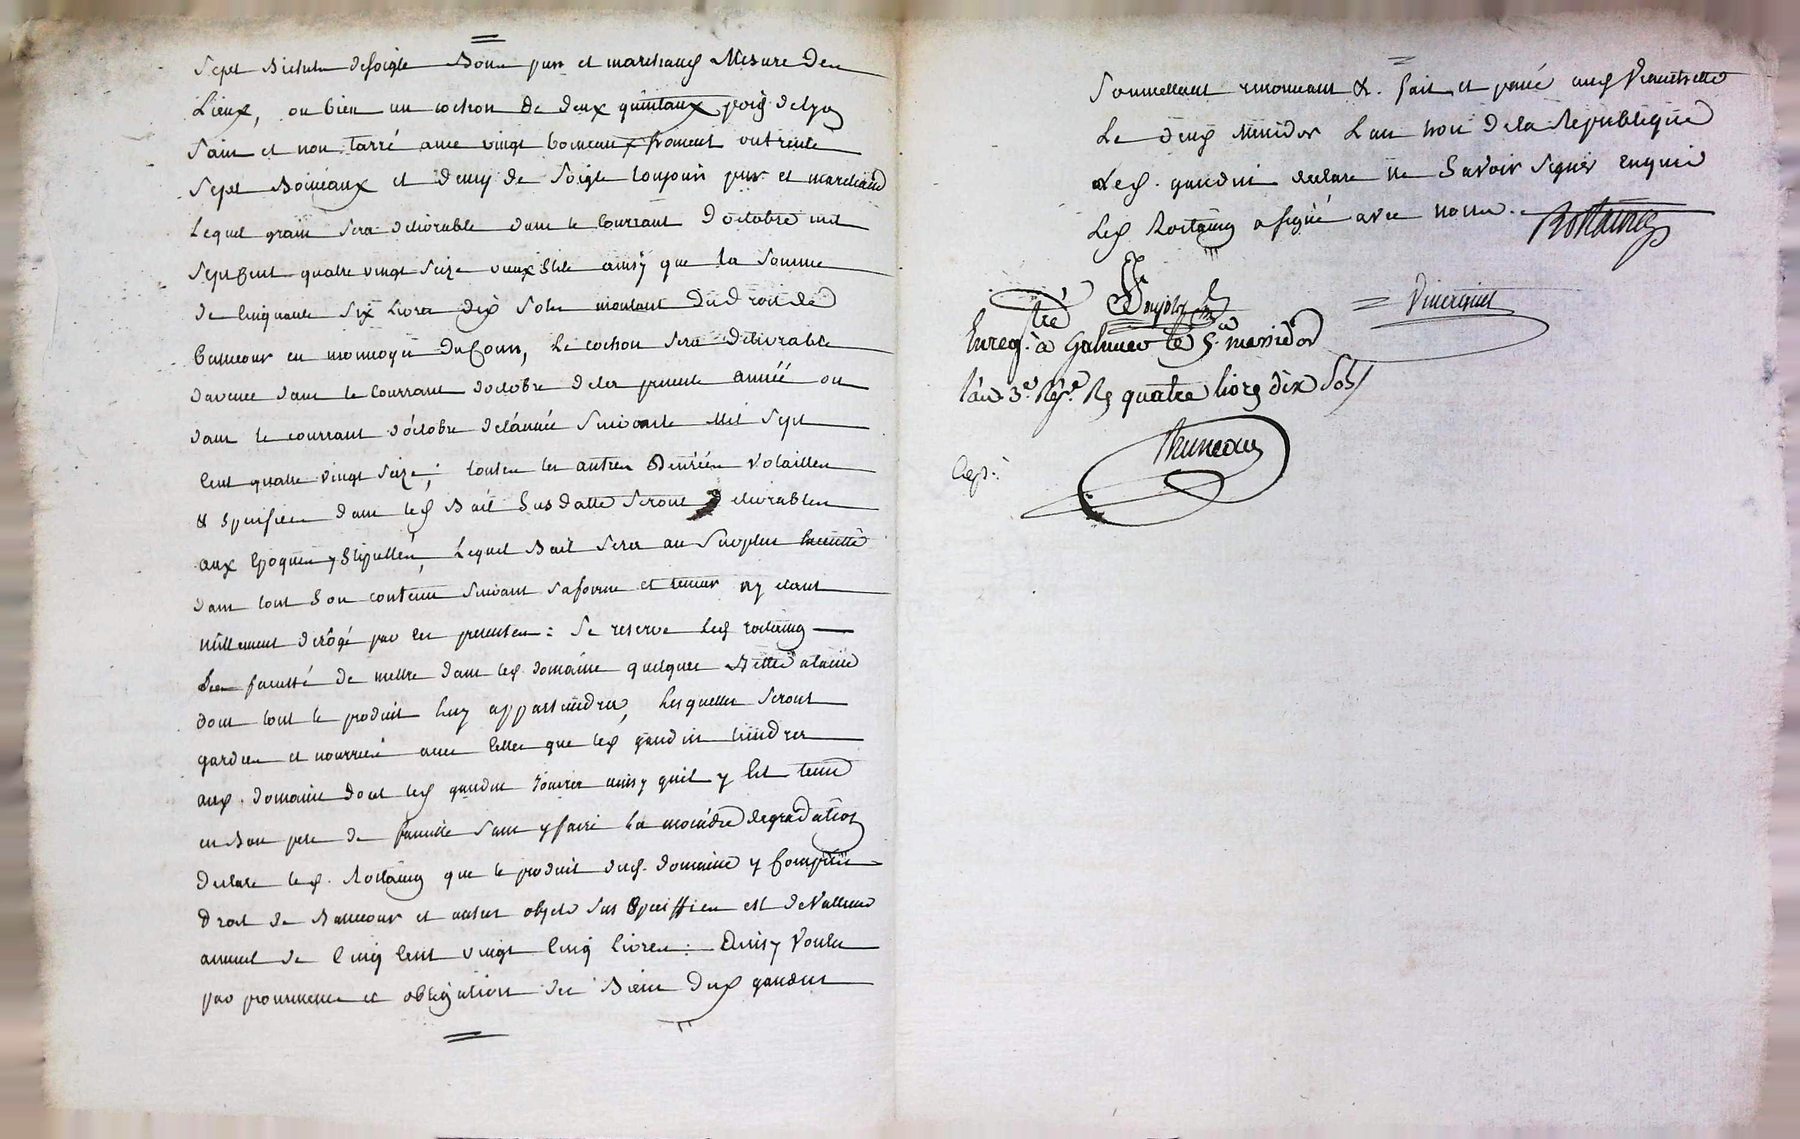 Sept Bichets de soigle Bon pur et marchand Mesure des
Lieux, ou bien un cochon de deux quintaux poids de lyon
Sain et non tarré avec vingt boiceaux froment et trente
Sept Boiceaux et demy de Soigle toujours pur et marchand
Lequel grain sera delivrable dans le Courrant d'octobre mil
Sept Cent quatre vingt Seize vieux Stile ainsy que la Somme
de Cinquante Six Livres dix Sols montant du droit de
en monnoye du Cours, Le cochon sera delivrable
d'avence dans le Courrant d'octobre de la presente année ou
dans le courrant d'octobre de l'année Suivante Mil Sept
Cent quatre vingt Seize; toutes les autres denrées volailles
& Speciffiées dans led Bail Susdatté Seront delivrables
aux Epoques y Stipullés, Lequel Bail sera au Surplus
dans tout Son contenu Suivant sa forme et teneur n'y etant
nullement derogé par les presentes: Se reserve Led rostaing
la faculté de mettre dans led domaine quelques Bettes a laine
dont tout le produit luy appartiendra, Lesquelles Seront
gardées et nourries avec Celles que led gaudin tiendra
aud. domaine dont led gaudin Jouira ainsy qu'il y Est tenu
en Bon pere de famille Sans y faire la moindre degradation
declare led. Rostaing que le produit dud. domaine y Compris
Droit de et autres objets Sus Speciffiés est de Valleur
annuel de Cinq Cent vingt Cinq livres: Ainsy Voulu
par promesses et obligation des Biens dud gaudin
Soumettant renonceant &. fait et passé aud
Le deux Messidor L'an trois de la Republique
Led. gaudin declare ne Savoir Signer enquis
Led Rostaing a signé avec nous.
Rostaing
Enreg.tré à Galmier le 5.e messidor
l'an 3.e Rép.e R quatre livres dix Sols
Bruneau